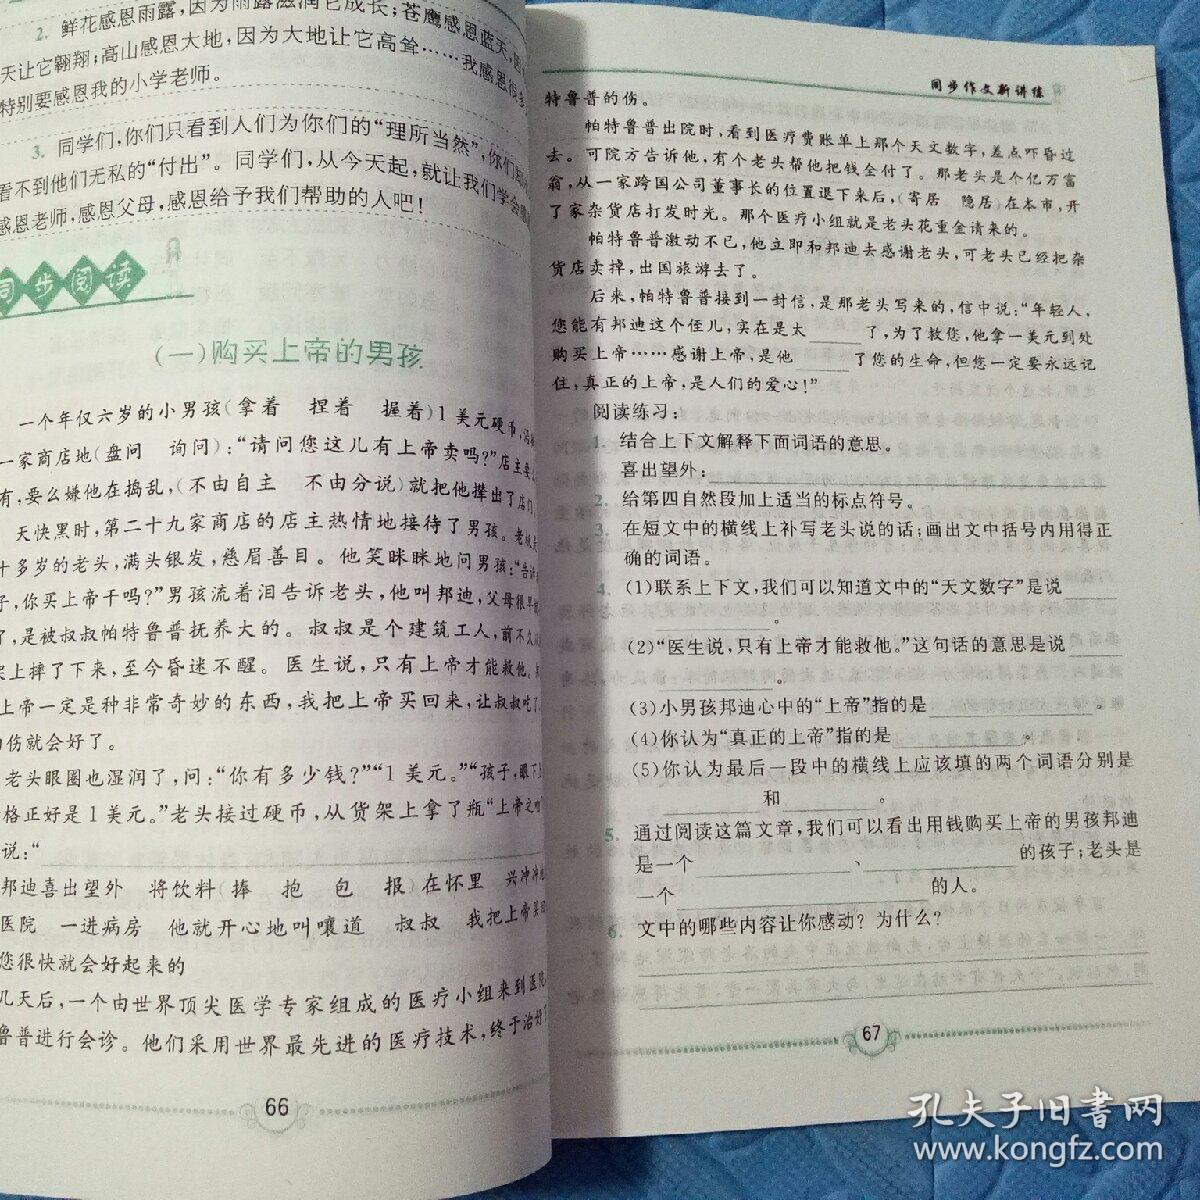 2. 鲜花感恩雨露,因为雨露滋润它成长;苍鹰感恩蓝天,因
天让它翱翔;高山感恩大地,因为大地让它高耸……我感恩很多
特别要感恩我的小学老师。
3. 同学们,你们只看到人们为你们的“理所当然”,你们
看不到他们无私的“付出”。同学们,从今天起,就让我们学会
感恩老师,感恩父母,感恩给予我们帮助的人吧!
同步阅读
(一)购买上帝的男孩
一个年仅六岁的小男孩(拿着 捏着 握着)1美元硬币,沿
一家商店地(盘问 询问):“请问您这儿有上帝卖吗?”店主要
有,要么嫌他在捣乱,(不由自主 不由分说)就把他撵出了店门
天快黑时,第二十九家商店的店主热情地接待了男孩。老板是
十多岁的老头,满头银发,慈眉善目。他笑眯眯地问男孩:“告诉
子,你买上帝干吗?”男孩流着泪告诉老头,他叫邦迪,父母很早
了,是被叔叔帕特鲁普抚养大的。叔叔是个建筑工人,前不久
架上摔了下来,至今昏迷不醒。医生说,只有上帝才能救他。
上帝一定是种非常奇妙的东西,我把上帝买回来,让叔叔吃了
伤就会好了。
老头眼圈也湿润了,问:“你有多少钱?”“1美元。”“孩子,眼下
格正好是1美元。”老头接过硬币,从货架上拿了瓶“上帝之吻
说:“
邦迪喜出望外 将饮料(捧 抱 包 报)在怀里 兴冲冲
医院 一进病房 他就开心地叫嚷道 叔叔 我把上帝买回
您很快就会好起来的
几天后,一个由世界顶尖医学专家组成的医疗小组来到医院
鲁普进行会诊。他们采用世界最先进的医疗技术,终于治好了
66
同步作文新讲练
特鲁普的伤。
帕特鲁普出院时,看到医疗费账单上那个天文数字,差点吓昏过
去。可院方告诉他,有个老头帮他把钱全付了。那老头是个亿万富
翁,从一家跨国公司董事长的位置退下来后,(寄居 隐居)在本市,开
了家杂货店打发时光。那个医疗小组就是老头花重金请来的。
帕特鲁普激动不已,他立即和邦迪去感谢老头,可老头已经把杂
货店卖掉,出国旅游去了。
后来,帕特鲁普接到一封信,是那老头写来的,信中说:“年轻人,
您能有邦迪这个侄儿,实在是太____了,为了救您,他拿一美元到处
购买上帝……感谢上帝,是他____了您的生命,但您一定要永远记
住,真正的上帝,是人们的爱心!”
阅读练习:
1. 结合上下文解释下面词语的意思。
喜出望外:____
2. 给第四自然段加上适当的标点符号。
3. 在短文中的横线上补写老头说的话;画出文中括号内用得正
确的词语。
4. (1)联系上下文,我们可以知道文中的“天文数字”是说____
____。
(2)“医生说,只有上帝才能救他。”这句话的意思是说____
____。
(3)小男孩邦迪心中的“上帝”指的是____。
(4)你认为“真正的上帝”指的是____。
(5)你认为最后一段中的横线上应该填的两个词语分别是
____和____。
5. 通过阅读这篇文章,我们可以看出用钱购买上帝的男孩邦迪
是一个____、____的孩子;老头是
一个____的人。
6. 文中的哪些内容让你感动?为什么?
67
孔夫子旧书网
www.kongfz.com